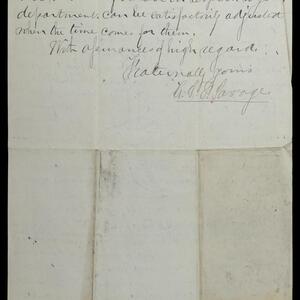 departments can be satisfactorily adjusted
when the time comes for them.
With assurances of high regards,
Fraternally yours
Savage